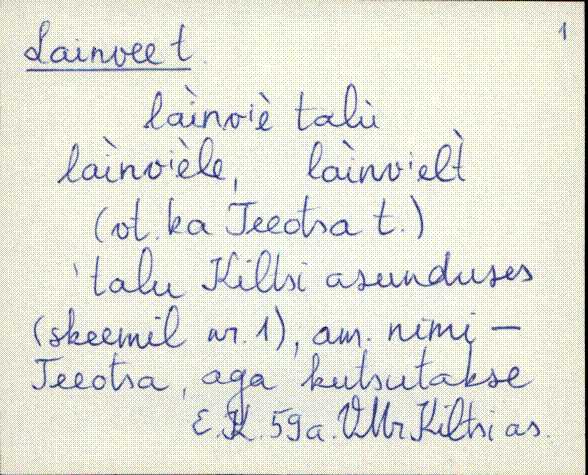 1
Lainvee t.
làinviè talù
làinvièle, làinvielt̀
(vt. ka Teeotsa t.)
talu Kiltsi asunduses
(skeemil nr. 1), am. nimi –
Teeotsa, aga kutsutakse
E.K. 59a. VMr Kiltsi as.